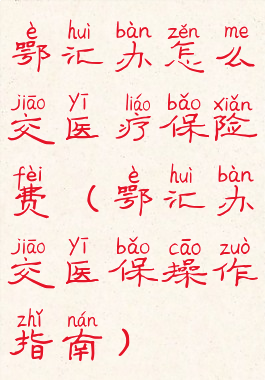 è huì bàn zěn me
鄂汇办怎么
jiāo yī liáo bǎo xiǎn
交医疗保险
fèi è huì bàn
费（鄂汇办
jiāo yī bǎo cāo zuò
交医保操作
zhǐ nán
指南）